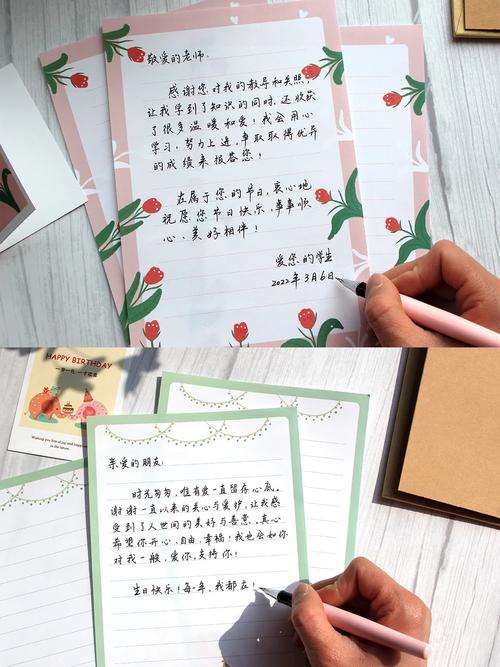 敬爱的老师：
感谢您对我的教导和关照，
让我学到了知识的同时，还收获
了很多温暖和爱！我会用心
学习，努力上进，争取取得优异
的成绩来报答您！
在属于您的节日，衷心地
祝愿您节日快乐，事事顺
心、美好相伴！
爱您的学生
2022年3月6日
HAPPY BIRTHDAY
Wishing you lots of joy and happiness
in the future.
亲爱的朋友：
时光匆匆，唯有爱一直留存心底。
谢谢一直以来的关心与爱护，让我感
受到了人世间的美好与善意。真心
希望你开心、自由、幸福！我也会如你
对我一般，爱你，支持你！
生日快乐！每一年，我都在！